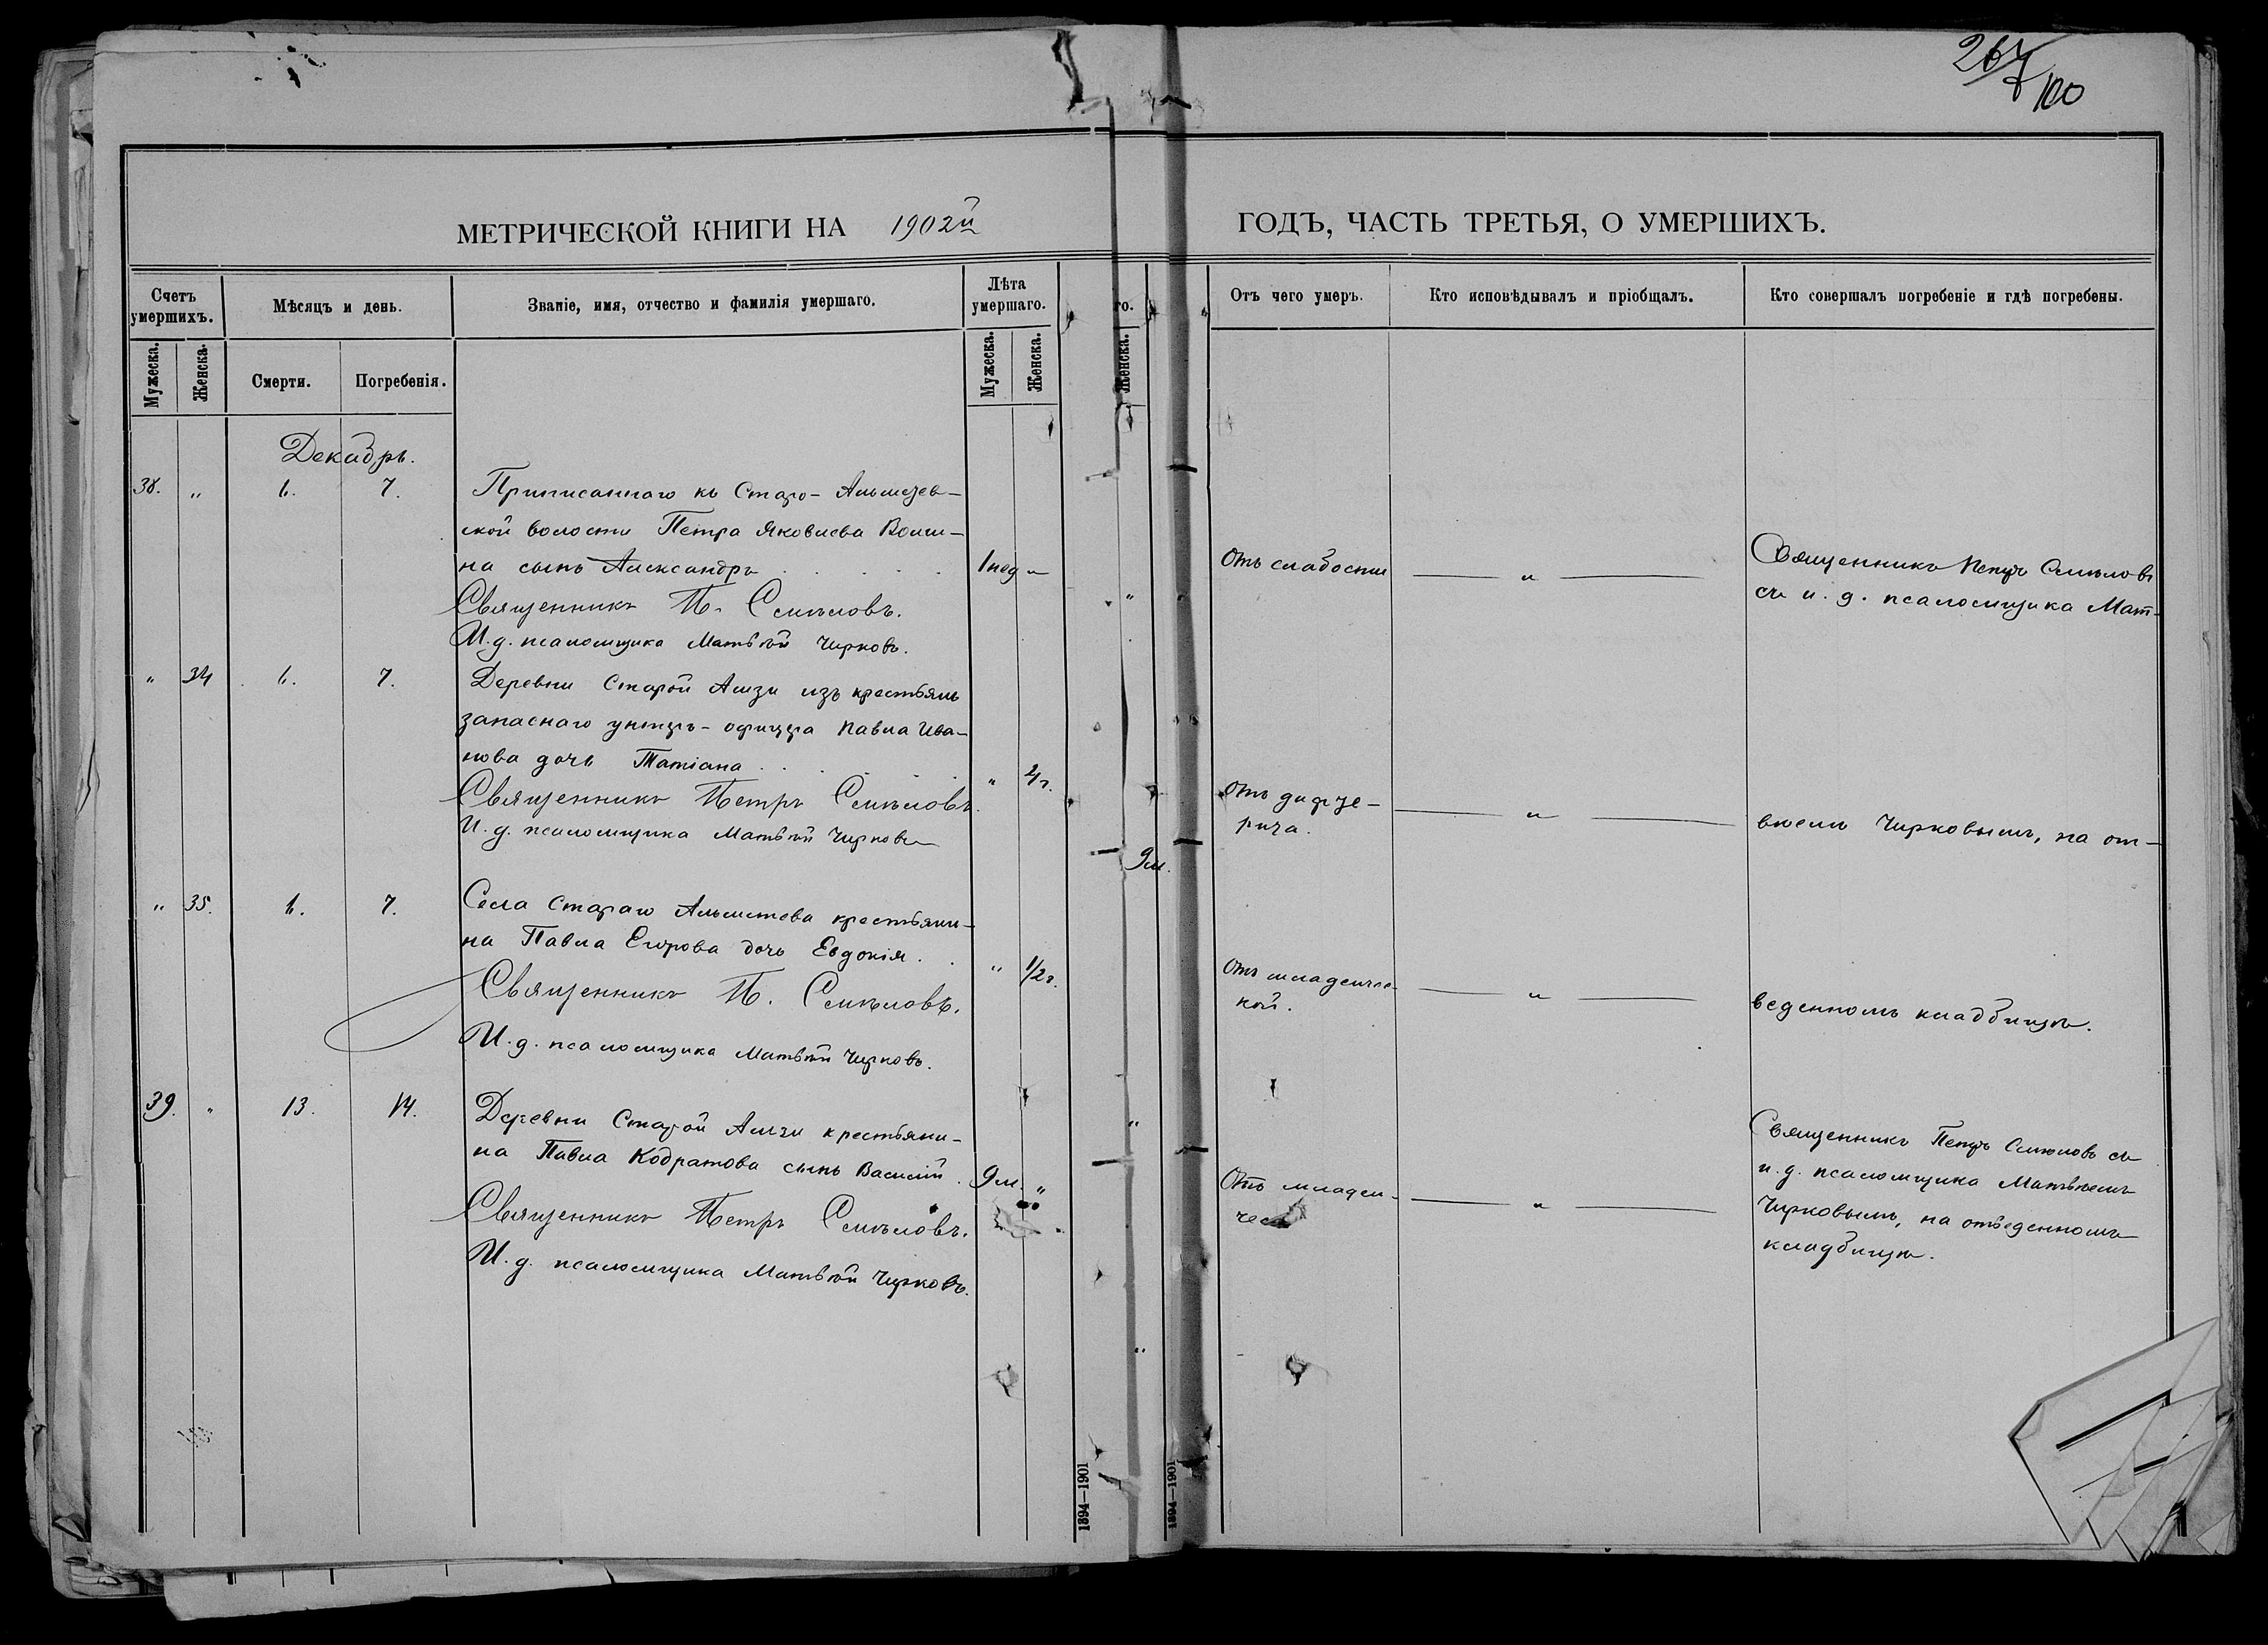 267
100
МЕТРИЧЕСКОЙ КНИГИ НА 1902й ГОДЪ, ЧАСТЬ ТРЕТЬЯ, О УМЕРШИХЪ.
Счетъ умершихъ.
Мѣсяцъ и день.
Званіе, имя, отчество и фамилія умершаго.
Лѣта умершаго.
го.
Отъ чего умеръ.
Кто исповѣдывалъ и пріобщалъ.
Кто совершалъ погребеніе и гдѣ погребены.
Мужеска.
Женска.
Смерти.
Погребенія.
Мужеска.
Женска.
Женска.
Декабрь.
38. " 6. 7. Приписаннаго къ Старо-
ской волости Петра Яковлева Волги-
на сынъ Александръ . . . . . 1 нед "
Священникъ П. Смѣловъ.
И.д. псаломщика Матвѣй Чирковъ.
Отъ слабости
— " —
Священникъ Петръ Смѣловъ
съ и. д. псаломщика Мат-
" 34 6. 7. Деревни Старой Амзи изъ крестьянъ
запаснаго унтеръ-офицера Павла Ива-
нова дочь Татіана . . . . " 4 г.
Священникъ Петръ Смѣловъ.
И.д. псаломщика Матвѣй Чирковъ
Отъ дифте-
рита.
— " —
вѣемъ Чирковымъ, на от-
9 м.
" 35. 6. 7. Села Стараго крестьяни-
на Павла Егорова дочь Евдокія . . " 1/2 г.
Священникъ П. Смѣловъ.
И.д. псаломщика Матвѣй Чирковъ.
Отъ младенчес-
кой.
— " —
веденномъ кладбищѣ.
39. " 13. 14. Деревни Старой Амзи крестьяни-
на Павла Кодратова сынъ Василій . 9 м. "
Священникъ Петръ Смѣловъ.
И.д. псаломщика Матвѣй Чирковъ.
Отъ младен-
чес
— " —
Священникъ Петръ Смѣловъ съ
и.д. псаломщика Матвѣемъ
Чирковымъ, на отведенномъ
кладбищѣ.
1894—1901
1894—1901